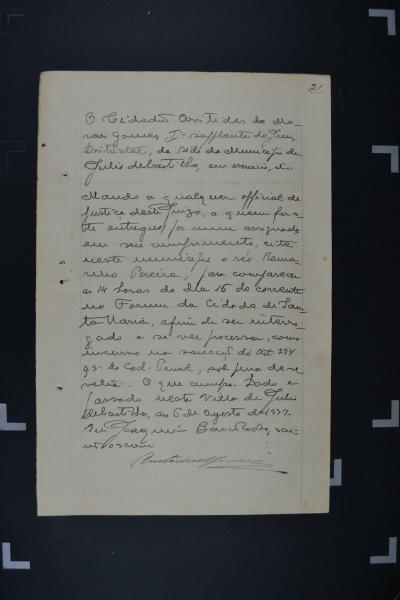 21
O Cidadão Aristides de Mo-
raes Gomes, 1º supplente do Juiz
Districtal, da séde do Municipio de
Julio de Castilhos, em exercicio, etc.
Mando a qualquer official de
justiça deste Juizo, a quem for es-
te entregue, por mim assignado
em seu cumprimento, cite
neste municipio o réo
Pereira, para comparecer
as 14 horas do dia 16 do corrente
no Forum da Cidade de San-
ta Maria, afim de ser interro-
gado e se ver processar, como
incurso na sancção do Art 294
§ do Cod. Penal, sob pena de re-
velia. O que cumpra. Dado e
passado nesta Villa de Julio
de Castilhos, aos 6 de Agosto de
Eu Joaquim